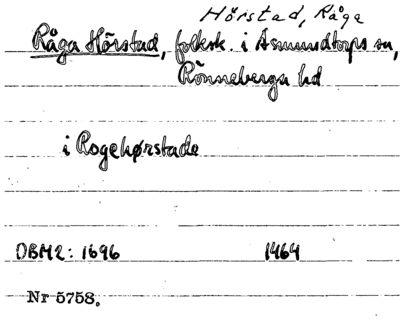 Hörstad, Råga
Råga Hörstad, folksk. i Asmundtorps sn,
Rönneberga hd
i Rogehørstade
DBM2: 1696 1464
Nr 5758.